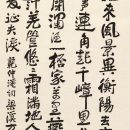 来風景異衡陽去
声連角起千嶂
閉濁酒一杯家萬
計羌管悠悠霜滿地
征夫淚 范仲淹詞 梁溪